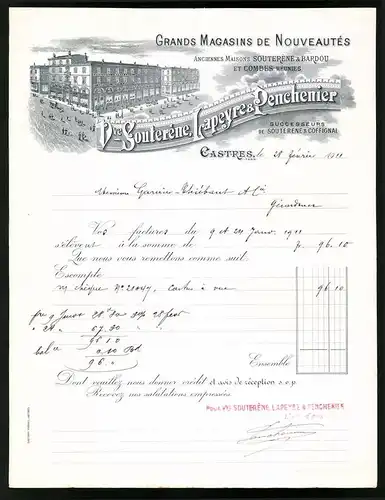 GRANDS MAGASINS DE NOUVEAUTÉS
ANCIENNES MAISONS SOUTERÈNE & BARDOU
ET COMBES RÉUNIES
Vve Souterène, Lapeyre & Penchenier
SUCCESSEURS
DE SOUTERÈNE & COFFIGNAL
CASTRES, le 28 février 1911
Messieurs Garnier-Thiébaut & Cie
Gérardmer
Vos factures du 9 & 24 Janv. 1911
s'élèvent à la somme de f. 96.10
Que nous vous remettons comme suit:
Escompte
chèque Castres à vue 96 10
28
67.30
96.10
0.10
96.0
Ensemble
Dont veuillez nous donner crédit et avis de réception s.v.p.
Recevez nos salutations empressées
POUR Vve SOUTERÈNE, LAPEYRE & PENCHENIER